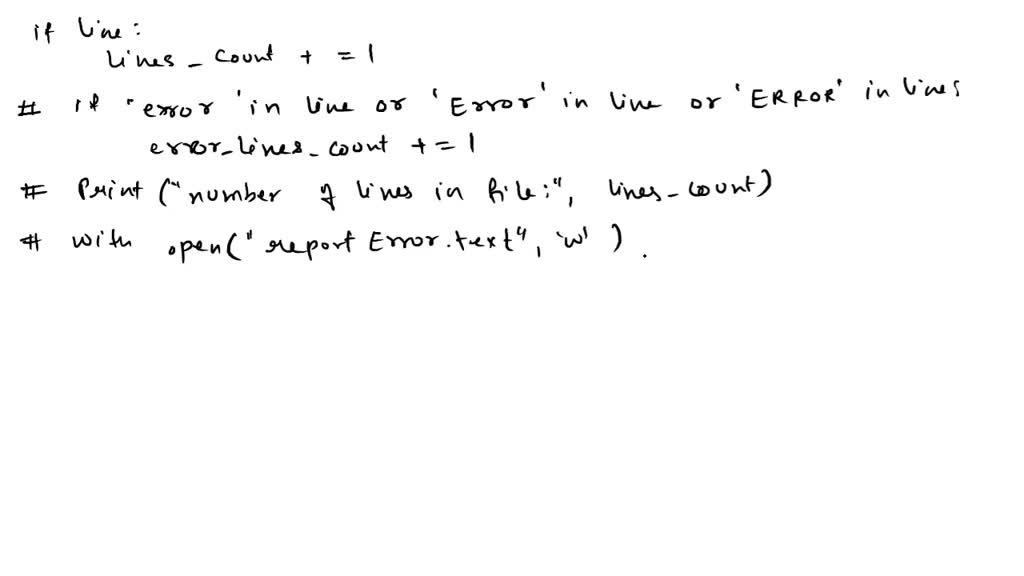 if line:
lines_count += 1
# if 'error' in line or 'Error' in line or 'ERROR' in lines
error_lines_count += 1
# Print ("number of lines in file:", lines_count)
# with open("report Error.text", 'w').